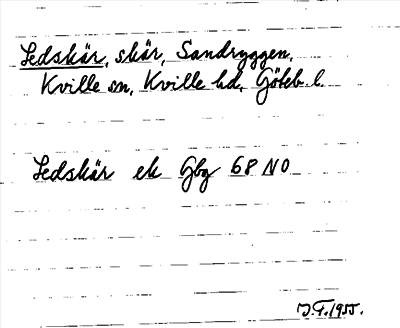 Ledskär, skär, Sandryggen,
Kville sn, Kville hd, Göteb. l.
Ledskär ek Gbg 68 NO
J.F. 1955.